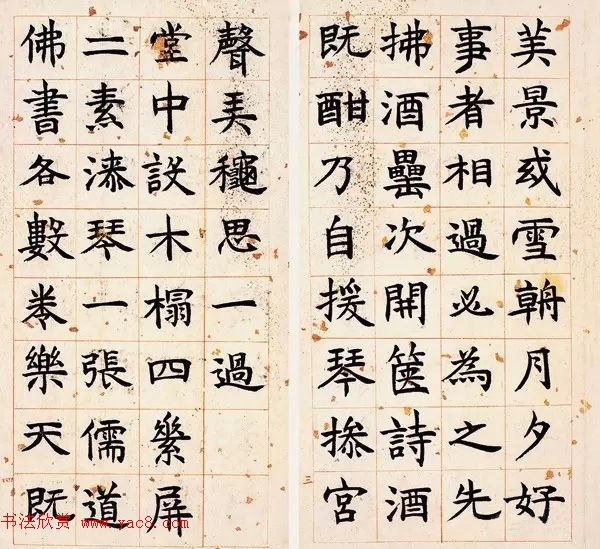 美景或雪朝月夕好
事者相過必為之先
拂酒罍次開篋詩酒
既酣乃自援琴操宮
三
聲弄穐思一過
堂中設木榻四屏
二素漆琴一張儒道
佛書各數卷樂天既
书法欣赏 www.yac8.com